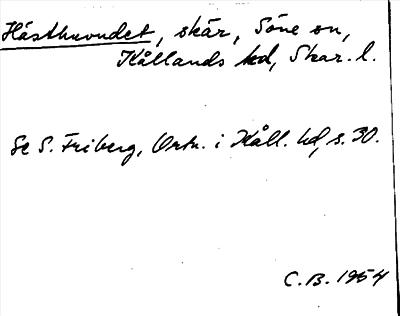 Hästhuvudet, skär, Söne sn,
Kållands hd, Skar. l.
Se S. Friberg, Ortn. i Kåll. hd, s. 30.
C. B. 1954